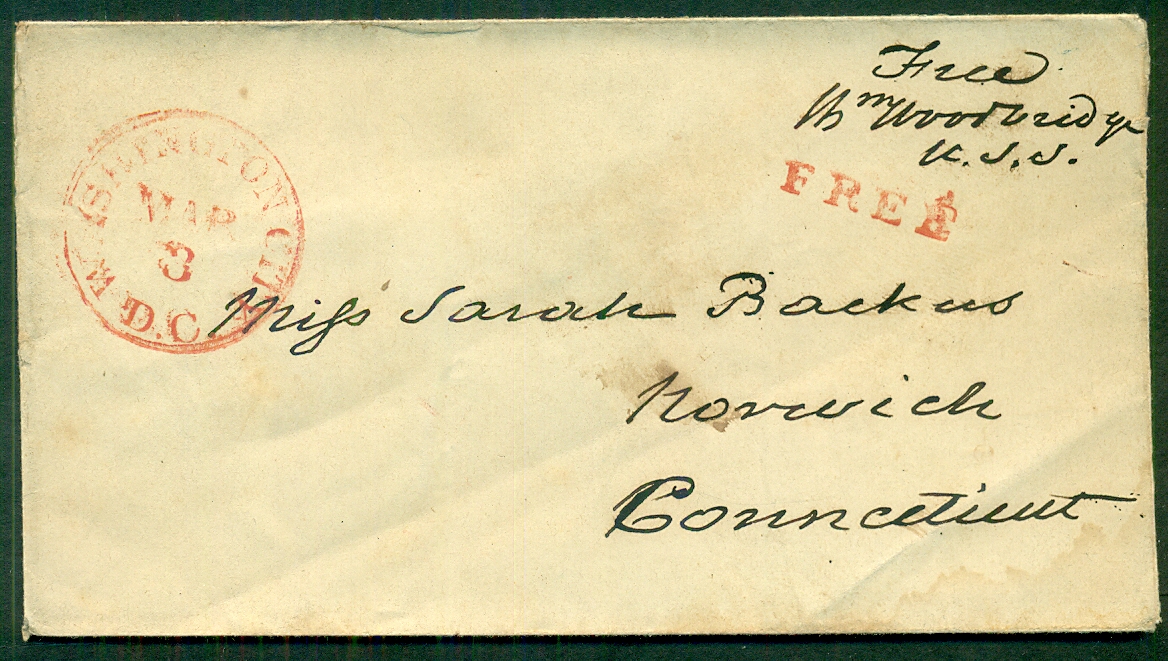 Free
Wm Woodbridge
U.S.S.
FREE
WASHINGTON CITY
MAR
3
D.C.
Miss Sarah Backus
Norwich
Connecticut